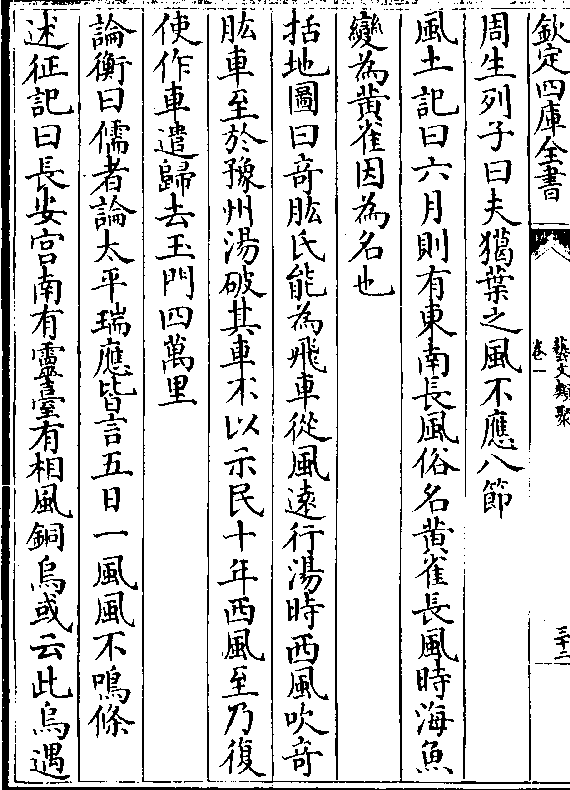 欽定四庫全書
藝文類聚
卷一
三十二
周生列子曰夫獦葉之風不應八節
風土記曰六月則有東南長風俗名黄雀長風時海魚
變為黄雀因為名也
括地圖曰竒肱氏能為飛車從風逺行湯時西風吹竒
肱車至於豫州湯破其車不以示民十年西風至乃復
使作車遣歸去玉門四萬里
論衡曰儒者論太平瑞應皆言五日一風風不鳴條
述征記曰長安宮南有靈臺有相風銅烏或云此烏遇